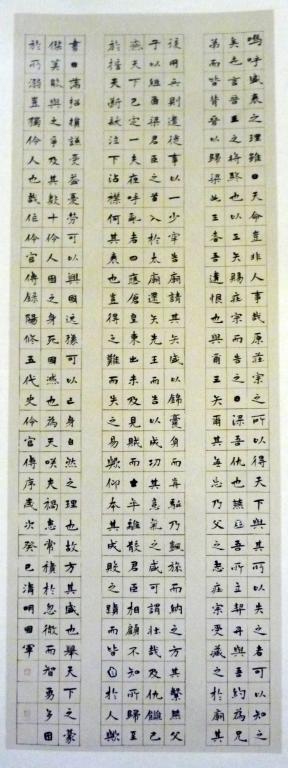 嗚呼盛衰之理雖曰天命豈非人事哉原莊宗之所以得天下與其所以失之者可以知之
矣世言晉王之將終也以三矢賜莊宗而告之曰梁吾仇也燕王吾所立契丹與吾約為兄
弟而皆背晉以歸梁此三者吾遺恨也與爾三矢爾其無忘乃父之志莊宗受而藏之於廟其
後用兵則遣從事以一少牢告廟請其矢盛以錦囊負而前驅乃凱旋而納之方其繫燕父
子以組函梁君臣之首入於太廟還矢先王而告以成功其意氣之盛可謂壯哉及仇讎已
滅天下已定一夫夜呼亂者四應倉皇東出未及見賊而士卒離散君臣相顧不知所歸至
於誓天斷髮泣下沾襟何其衰也豈得之難而失之易歟抑本其成敗之跡而皆自於人歟
書曰滿招損謙受益憂勞可以興國逸豫可以亡身自然之理也故方其盛也舉天下之豪
傑莫能與之爭數十伶人困之身死國滅為天下咲夫禍患常積於忽微而智勇多困
於所溺豈獨伶人也哉作伶官傳歐陽修五代史伶官傳序歲次癸巳清明田軍